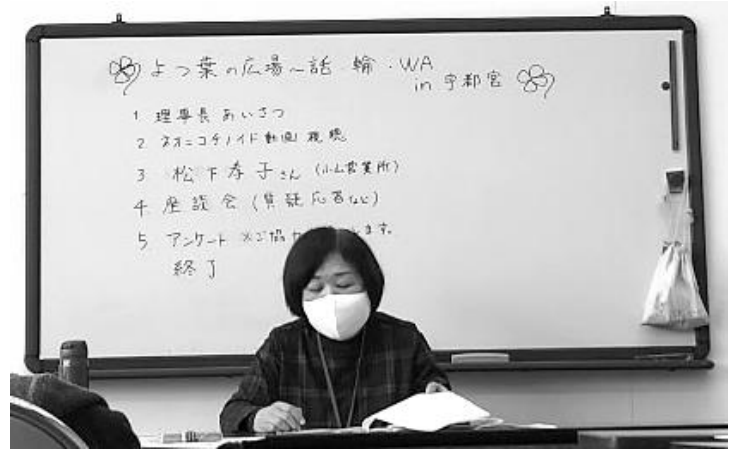 よつ葉の広場～話・輪・WA
in 宇都宮
1 理事長あいさつ
2 ネオニコチノイド動画視聴
3 松下孝子さん (小山営業所)
4 座談会 (質疑応答など)
5 アンケート ※ご協力 ます。
終了